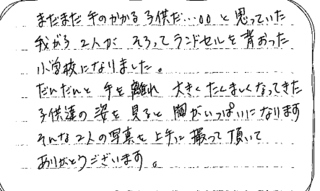 まだまだ手のかかる子供だ…○○と思っていた
我がら2人が そろってランドセルを背おった
小学校になりました。
だんだんと手を離れ 大きくたくましくなってきた
子供達の姿を見ると胸がいっぱいになります
そんな2人の写真を上手に撮って頂いて
ありがとうございます。